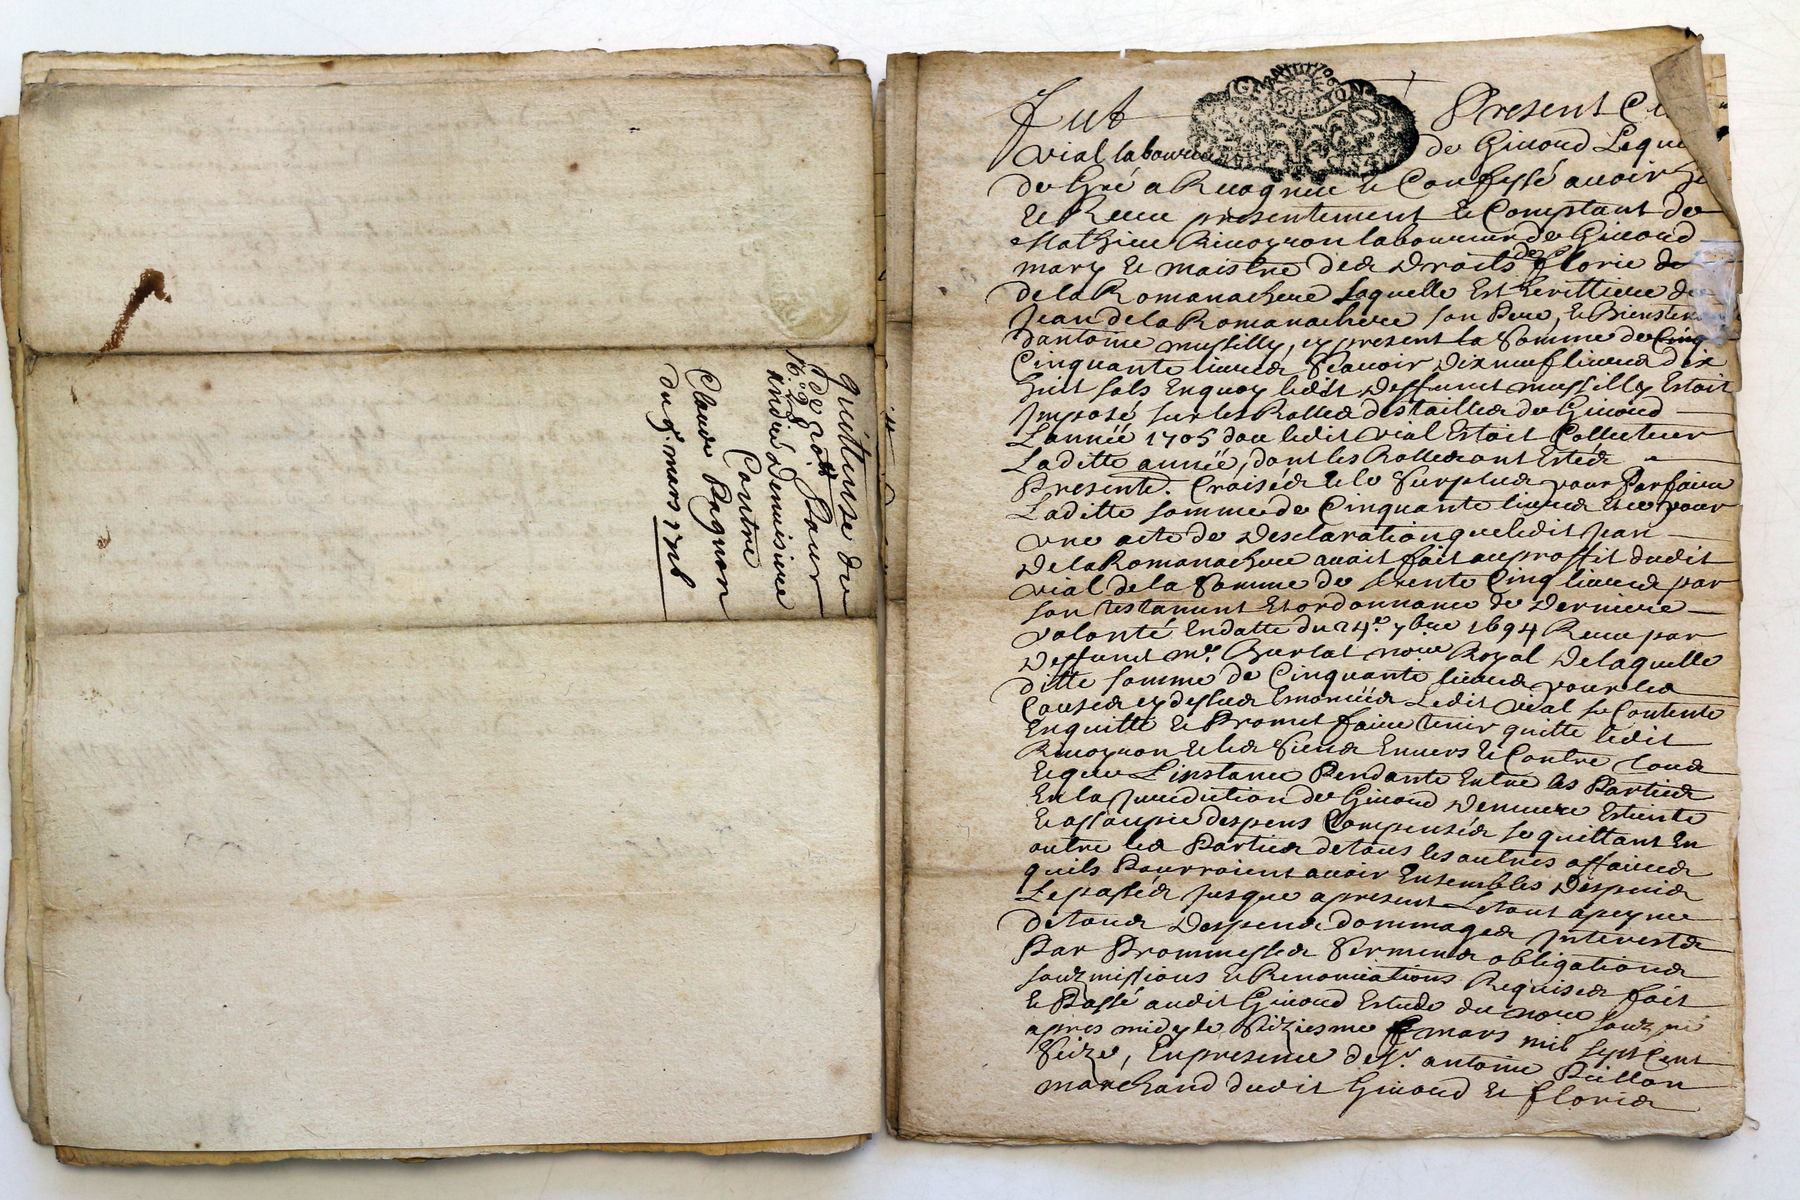 quittense de
pour
andré Demeisire
Contre
Claude Pagnon
du 9e. mars 1716
Fut Present Cl
vial laboureur de Giuord Lequel
de Gré a Recogneu et Confessé auoir
et Receu presentement et Comptant de
Mathieu Riuoyron laboureur de Giuord
mary et maistre des droits de florie de
de la Romanachere laquelle Est herittiere de
Jean de la Romanachere son Pere, et Bienstena
dantoine mussilly, cy present la Somme de Cinq
Cinquante liures Scauoir Dixneuf liures dix
huit sols Enquoy ledit Deffunct mussilly Estoit
Imposé sur les Rolles des tailles de Giuord
L'année 1705 dou ledit vial Estoit Collecteur
Laditte année, dont les Rolles ont Estés
Presente. Croisés et le Surplus pour Parfaire
Laditte somme de Cinquante liures Est pour
une acte de Desclaration que ledit Jean
De la Romanachere auait fait au proffit dudit
vial de la Somme de trente Cinq liures par
son testament Et ordonnance de Derniere
volonté Endatte du 24e. 7bre 1694 Receu par
Deffunct me. Burlat nore Royal De laquelle
ditte somme de Cinquante liures pour les
Causes cy dessus Enoncées Ledit vial se Contente
Enquitte et Promet faire tenir quitte ledit
Riuoyron et les Siens Enuers et Contre tous
Et que L'instance Pendante Entre les Parties
En la Jurisdiction de Giuord Demeure Esteinte
Et assoupie despens Compensés se quittant En
outre les Parties de tous les autres affaires
quils Pourroient auoir Ensembles Despuis
Le passé Jusque a present Le tout a peyne
de tous Despens dommages Interests
Par Prommesses Sermens obligations
soubzmissions et Renonciations Requises fait
et Passé audit Giuord Estude du nore soubzné
apres midy le Seiziesme mars mil sept Cent
Seize, En presence de Sr. antoine Peillon
marchand dudit Giuord et floris